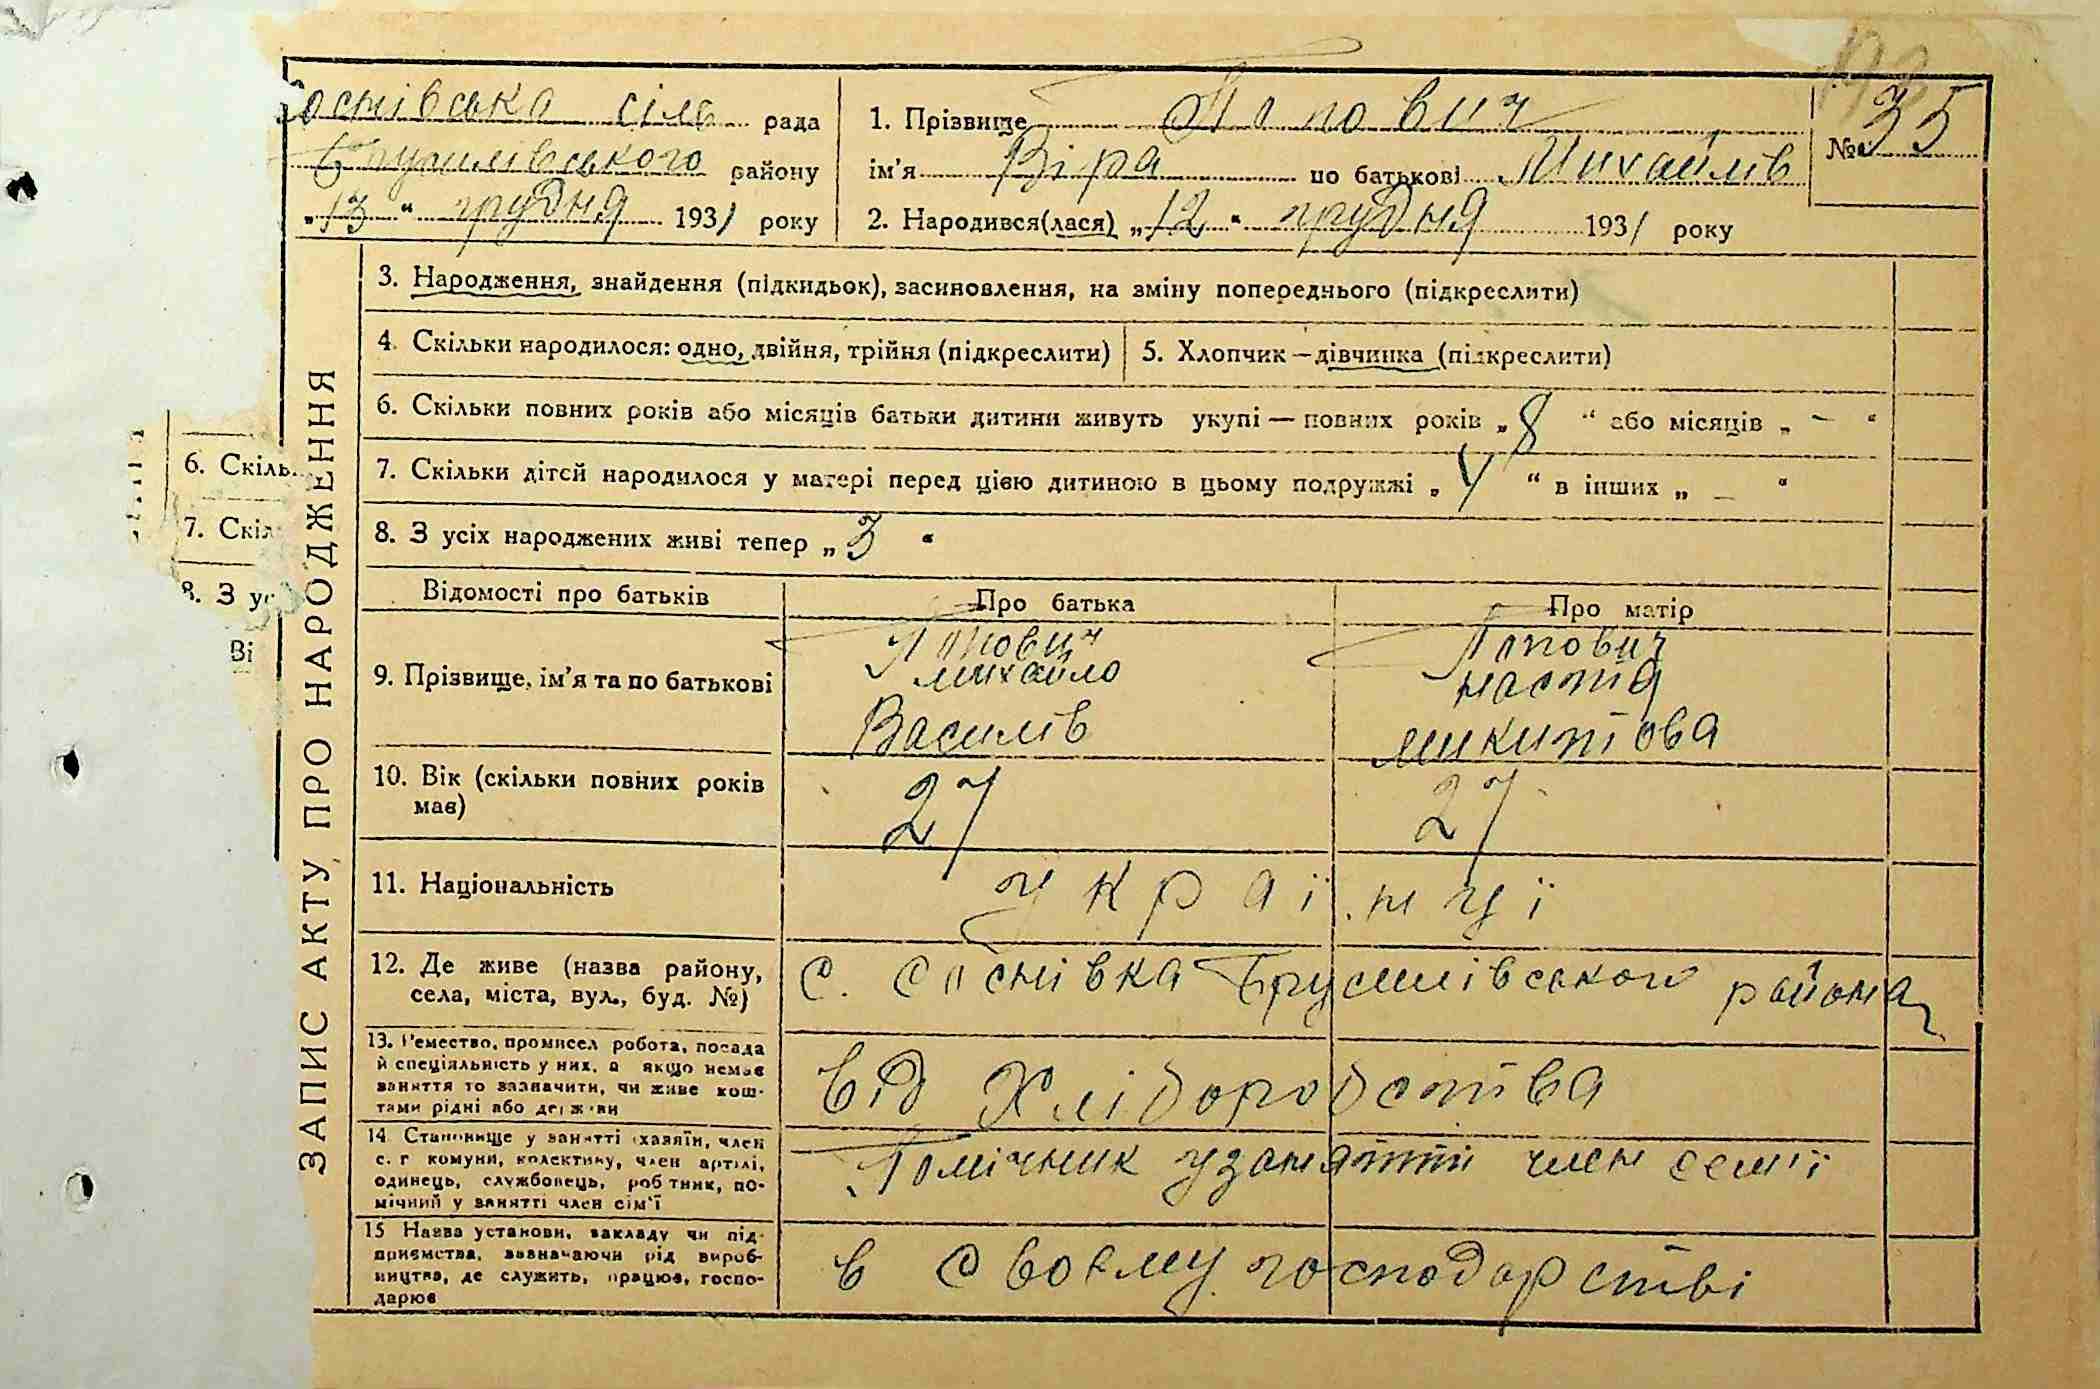 Состівська сіль рада
Брусилівського району
„13“ грудня 1931 року
1. Прізвище Попович
ім’я Віра по батькові Михайлів
2. Народився(лася) „12“ грудня 1931 року
№ 35
ЗАПИС АКТУ ПРО НАРОДЖЕННЯ
3. Народження, знайдення (підкидьок), засиновлення, на зміну попереднього (підкреслити)
4. Скільки народилося: одно, двійня, трійня (підкреслити)
5. Хлопчик – дівчинка (підкреслити)
6. Скільки повних років або місяців батьки дитини живуть укупі — повних років „8“ або місяців „–“
7. Скільки дітей народилося у матері перед цією дитиною в цьому подружжі „4“ в інших „–“
8. З усіх народжених живі тепер „3“
6. Скіль
7. Скіл
8. З ус
Ві
Відомості про батьків
Про батька
Про матір
9. Прізвище, ім’я та по батькові
Попович
Михайло
Василів
Попович
Настя
Микитова
10. Вік (скільки повних років
має)
27
27
11. Національність
українці
12. Де живе (назва району,
села, міста, вул., буд. №)
с. Состівка Брусилівського района
13. Ремество, промисел робота, посада
й спеціяльність у них, а якщо немає
заняття то зазначити, чи живе кош-
тами рідні або держави
від Хліборобства
14. Становище у занятті (хазяїн, член
с. г комуни, колективу, член артілі,
одинець, службовець, робітник, по-
мічний у занятті член сім’ї
Помічник узанятті член семії
15 Назва установи, закладу чи під-
приємства, зазначаючи рід вироб-
ництва, де служить, працює, госпо-
дарює
в своєму господарстві